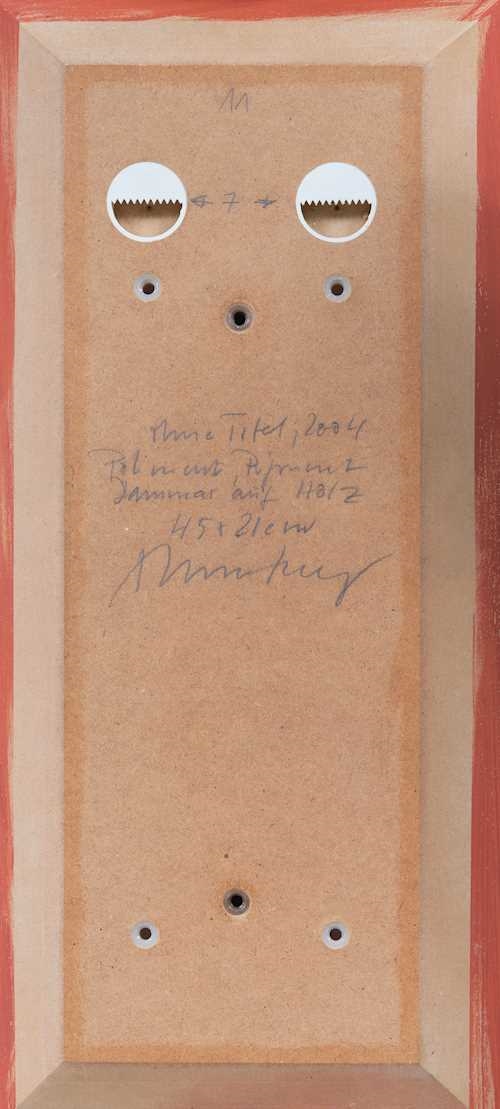 11
7
Ohne Titel, 2004
Poliment, Pigment
Dammar auf Holz
45 x 21 cm